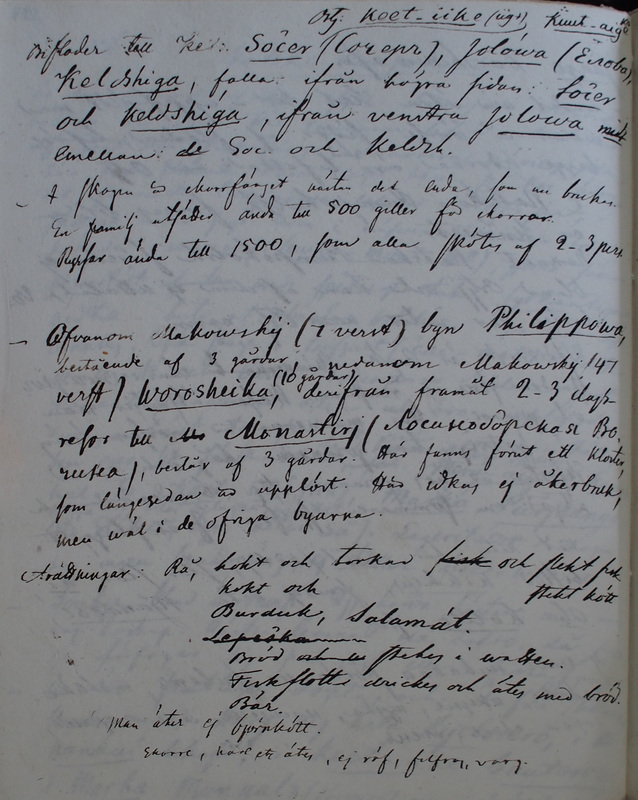 Ostj: Keet-iike (ugr),
Bifloder till Ket: Sočer (Сочерг), Jolówa (Елова),
Keldshiga, falla: ifrån högra sidan: Sočer
och Keldshiga, ifrån venstra Jolowa
emellan: de Soc. och Keldsh.
I skogen är ekorrfånget nästan det enda, som nu
En familj utsätter ända till 500 giller för ekorrar.
Ryssar ända till 1500, som alla skötes af 2-3 pers
Ofvanom Makowskij (7 verst) byn Philippowa,
bestående af 3 gårdar, nedanom Makowskij 147
verst) Worosheika, (10 gårdar) derifrån framåt 2-3 dags-
resor till Mo Monasterj (Лосиноборская Во-
), består af 3 gårdar. Här funns förut ett kloster,
som längesedan är upplöst. Här idkas ej åkerbruk,
men wäl i de öfriga byarna.
Anrättningar: Rå, kokt och torkad fisk och stekt fisk
kokt och stekt kött
Burduk, Salamát.
Lepeška
Bröd och stekes i
Fiskflott drickes och ätes med bröd.
Bär.
Man äter ej björnkött.
Ekorre, ätes, ej räf, filfras, varg.